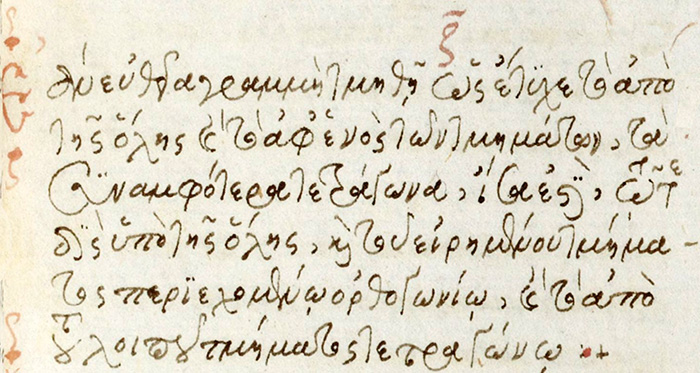 ζ
ἐὰν εὐθεῖα γραμμὴ τμηθῆ ὡς ἔτυχε τὸ ἀπὸ
τῆς ὅλης καὶ τὸ ἀφ' ἑνὸς τῶν τμημάτων, τὰ
συναμφότερα τετράγωνα, ἴσα ἐστὶ, τῶ τε
δὶς ὑπὸ τῆς ὅλης, καὶ τοῦ εἰρημένου τμήμα-
τος περιεχομένω ὀρθογωνίω, καὶ τῶ ἀπὸ
τοῦ λοιποῦ τμήματος τετραγώνω :+